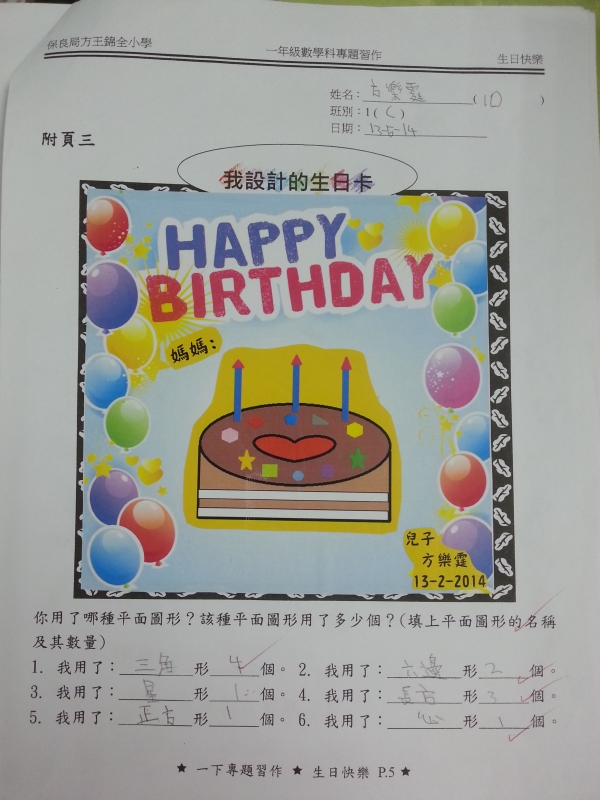 保良局方王錦全小學 一年級數學科專題習作 生日快樂
姓名：方樂霆(10)
班別：1(C)
日期：13-5-14
附頁三
我設計的生日卡
HAPPY
BIRTHDAY
媽媽：
兒子
方樂霆
13-2-2014
你用了哪種平面圖形？該種平面圖形用了多少個？(填上平面圖形的名稱
及其數量)
1. 我用了：三角形4個。 2. 我用了：六邊形2個。
3. 我用了：星形1個。 4. 我用了：長方形3個。
5. 我用了：正方形1個。 6. 我用了：心形1個。
★ 一下專題習作 ★ 生日快樂 P.5 ★